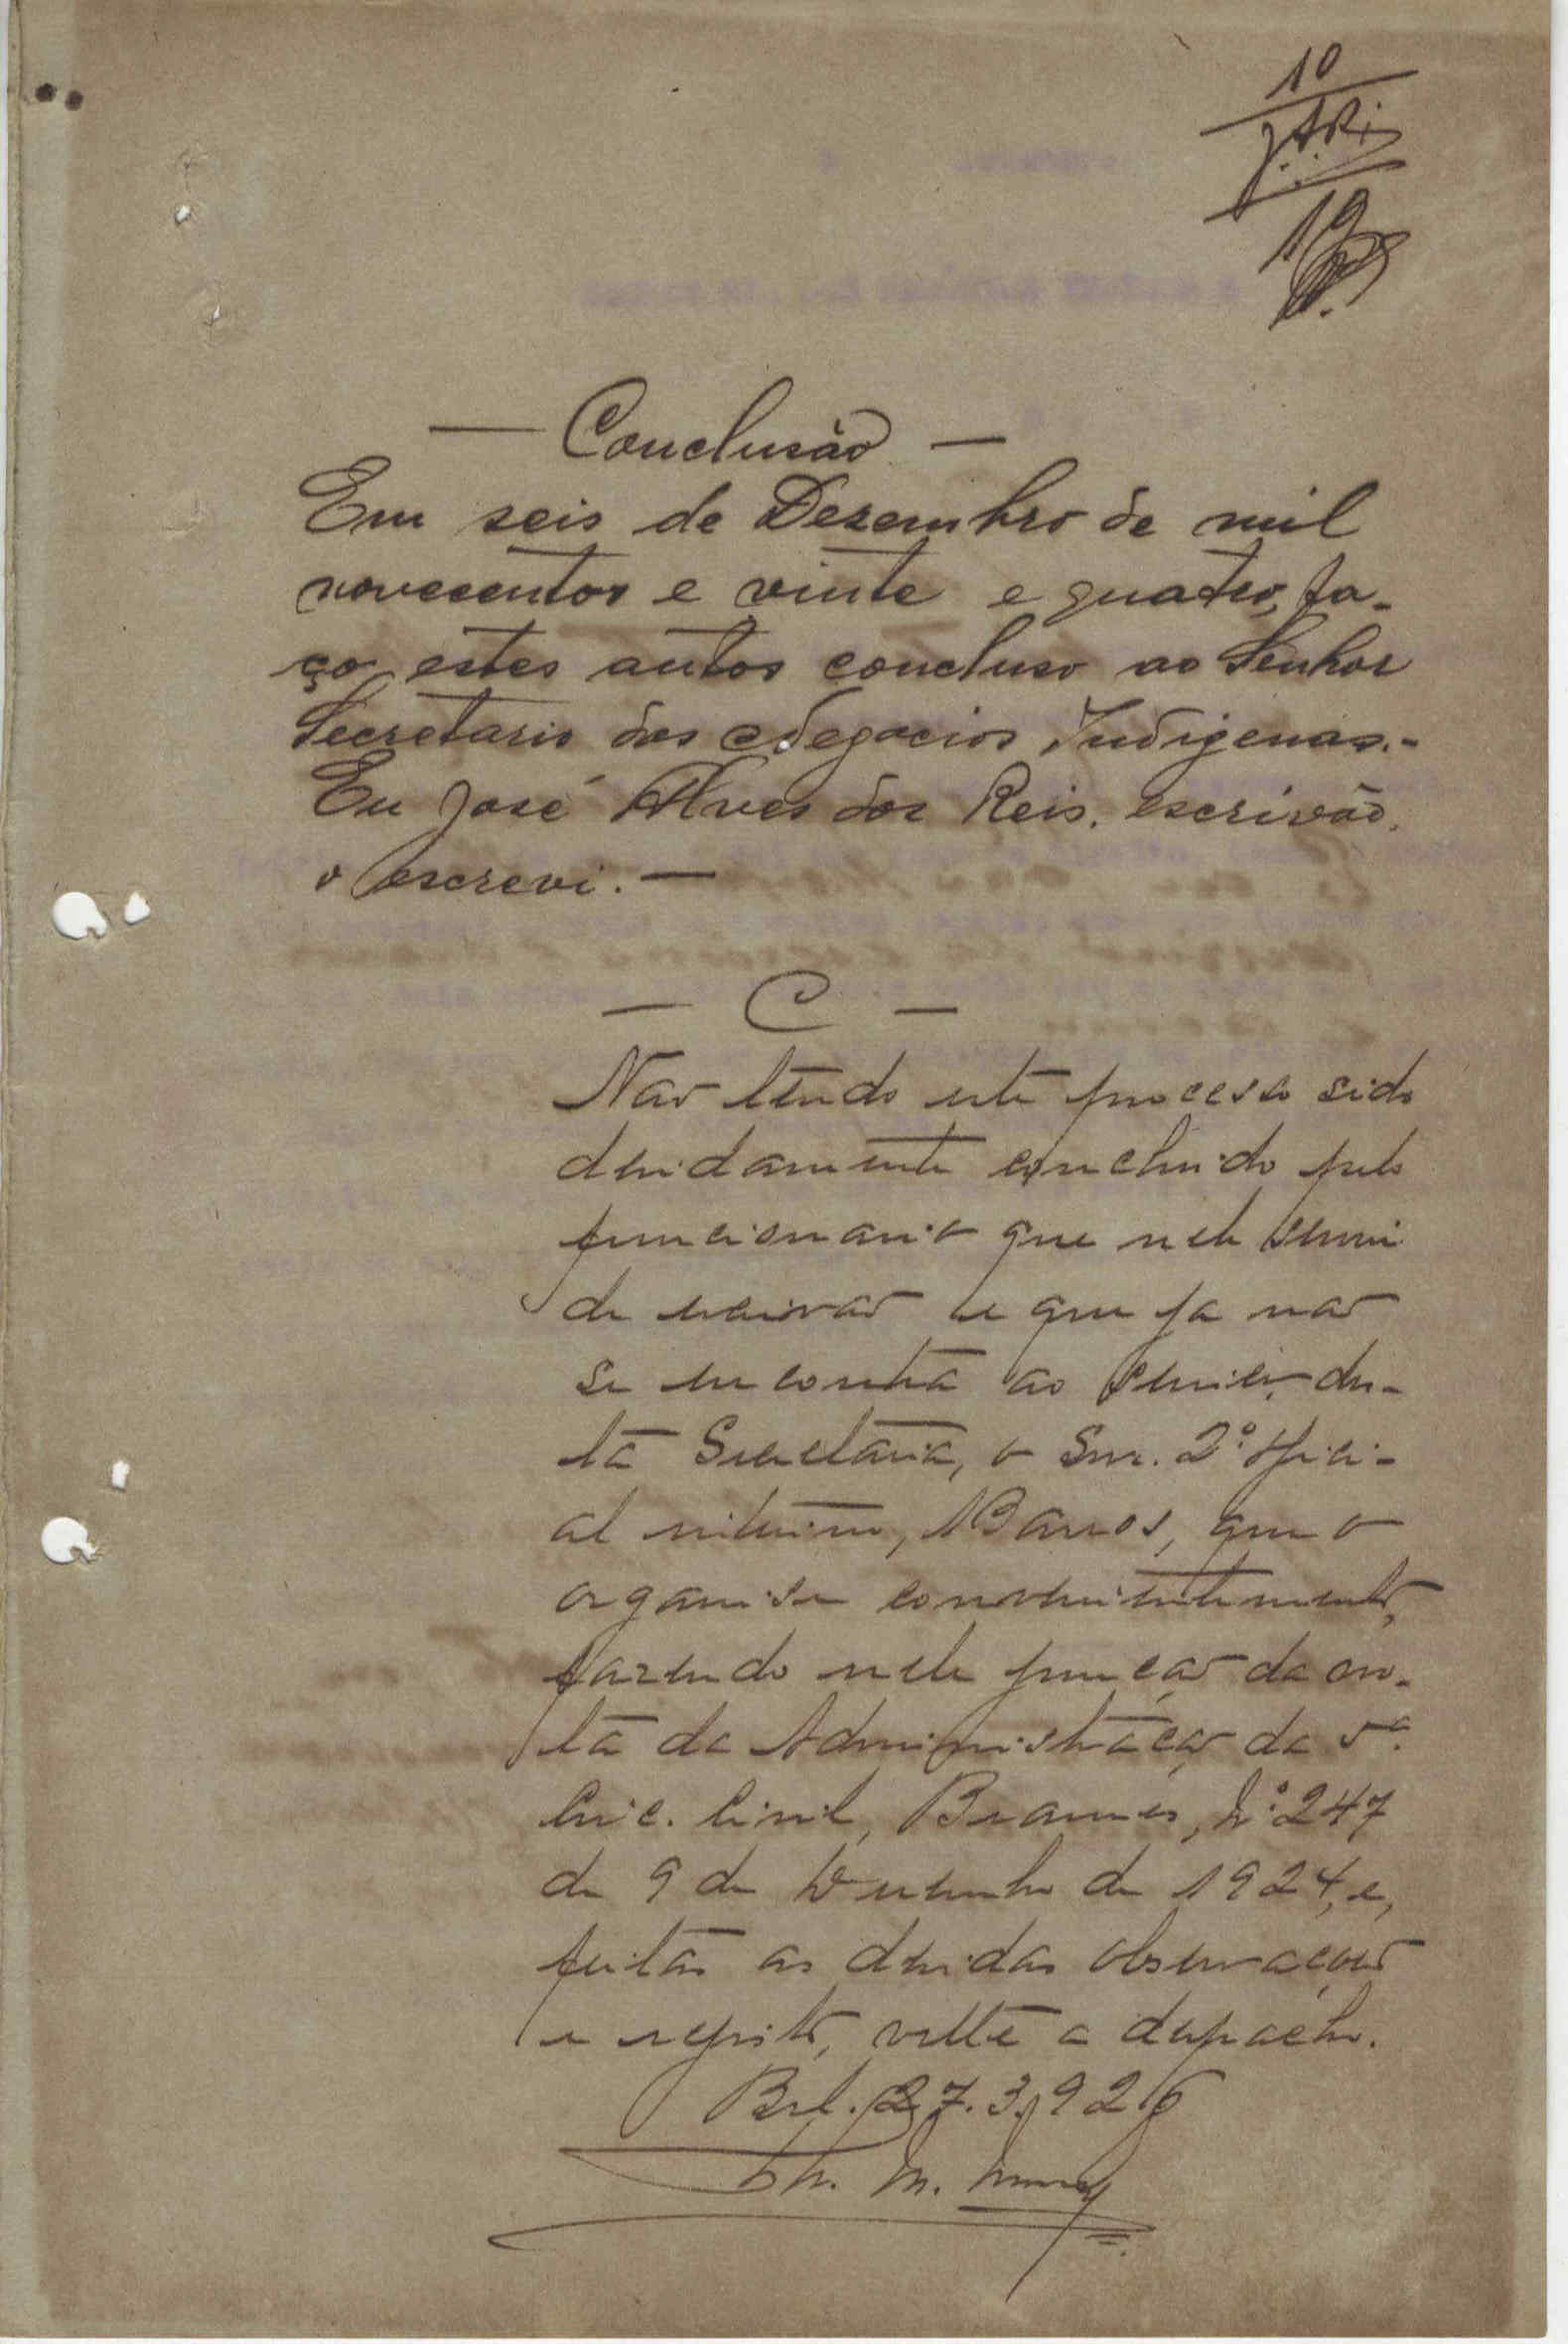 10
J.A.Reis
19
— Conclusão —
Em seis de Dezembro de mil
novecentos e vinte e quatro, fa-
ço estes autos concluso ao Senhor
Secretario dos Negocios Indigenas.-
Eu José Alves dos Reis, escrivão,
o escrevi. —
— C —
Não tendo este processo sido
devidamente concluido pelo
funcionario que nele serviu
de escrivão e que já não
se encontra ao serviço des-
ta Secretaria, o Snr. 2º. Ofici-
al interino, Barros, que o
organise convenientemente,
fazendo nele junção da no-
ta da Administração da 5ª.
Circ. Civil, Buramos, Nº. 247
de 9 de Dezembro de 1924, e,
feitas as devidas observações
e registo, volte a despacho.
Bol. 27.3.926